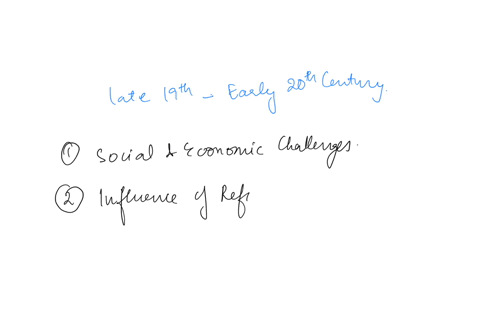 Late 19th - Early 20th Century.
① Social & Economic Challenges.
② Influence of Refr